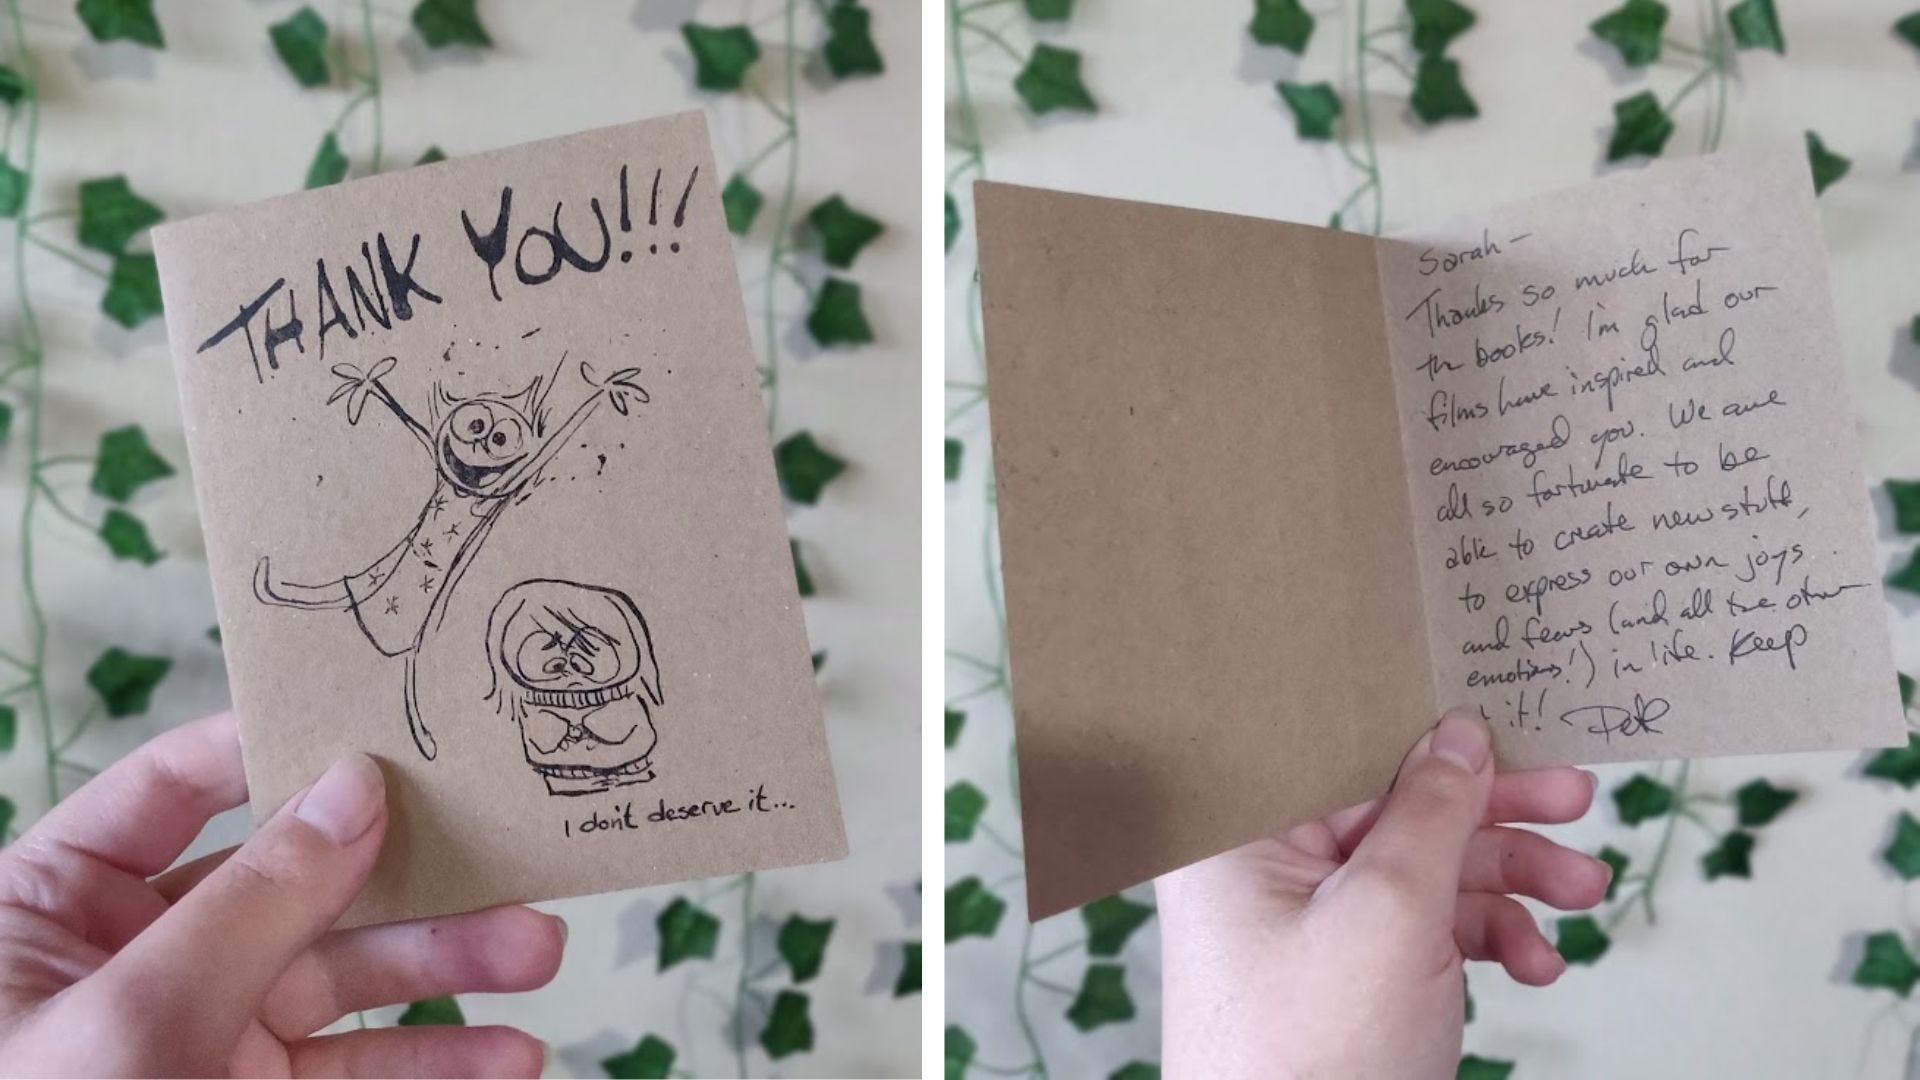 THANK YOU!!!
I don't deserve it...
Sarah—
Thanks so much for
the books! I'm glad our
films have inspired and
encouraged you. We are
all so fortunate to be
able to create new stuff,
to express our own joys
and fears (and all the other
emotions!) in life. Keep
it! Pete